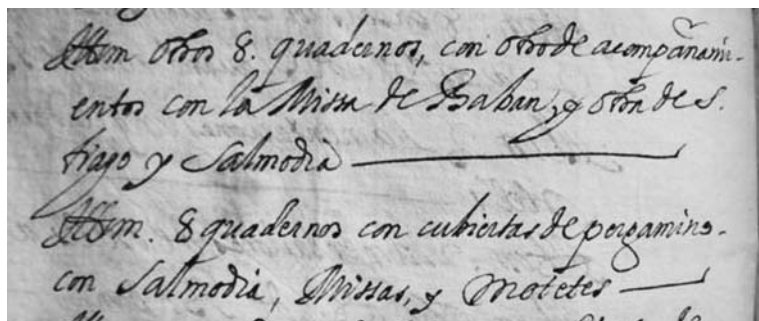 Ittem otros 8. quadernos, con otro de acompañami-
entos con la Missa de Baban, y otra de S.
tiago y Salmodia
Ittem. 8 quadernos con cubiertas de pergamino.
con Salmodia, Missas, y Motetes